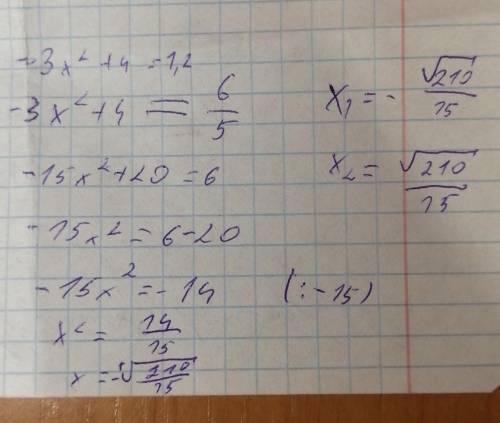 -3x² + 4 = 1,2
-3x² + 4 = 6/5
-15x² + 20 = 6
-15x² = 6 - 20
-15x² = -14 (: -15)
x² = 14/15
x = ±√(210/15)
x₁ = - √210/15
x₂ = √210/15